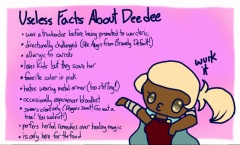 Useless Facts About Deedee
• was a troubadour before being promoted to war cleric
• directionally challenged (like Agnès from Bravely Default!)
• allergic to carrots
• loves kids but they scare her
• favorite color is pink
• hates wearing metal armor (too stifling!)
• occasionally experiences bloodlust
• swears creatively
tree! You walnut!)
• prefers herbal remedies over healing magic
• is only here for the food
wurk it